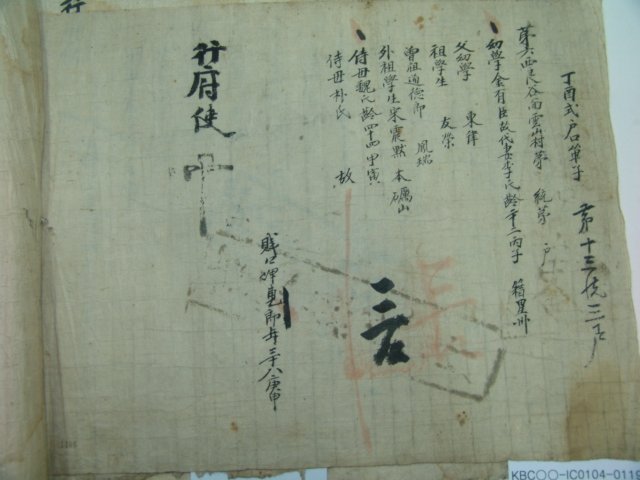 丁酉式戶口單子 第十三統三戶
第六西良谷面雲山村第 統第 戶
幼學金有臣故代妻李氏齡二十二丙子 籍星州
父幼學 東鐸
祖學生 友榮
曾祖通德郎 鳳瑞
外祖學生宋震默 本礪山
侍母魏氏齡四十四甲寅
侍母朴氏 故
賤口婢 年三十八庚申
行府使
KBC○○-IC0104-0119